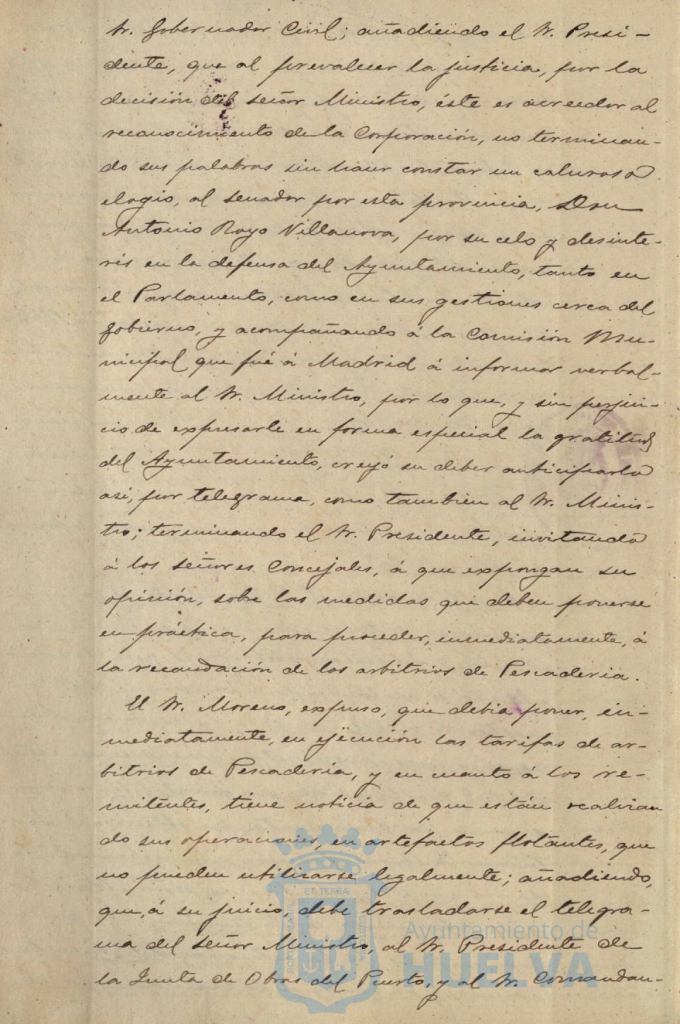 Sr. Gobernador Civil; añadiendo el Sr. Presi-
dente, que al prevalecer la justicia, por la
decisión del señor Ministro, éste es acreedor al
reconocimiento de la Corporación, no terminan-
do sus palabras sin hacer constar un caluroso
elogio, al senador por esta provincia, Don
Antonio Royo Villanova, por su celo y desinte-
rés en la defensa del Ayuntamiento, tanto en
el Parlamento, como en sus gestiones cerca del
Gobierno, y acompañando á la Comisión Mu-
nicipal que fué á Madrid á informar verbal-
mente al Sr. Ministro, por lo que, y sin perjui-
cio de expresarle en forma especial la gratitud
del Ayuntamiento, creyó su deber anticiparla
asi, por telegrama, como también al Sr. Minis-
tro; terminando el Sr. Presidente, invitando
á los señores Concejales, á que expongan su
opinión, sobre las medidas que deben ponerse
en práctica, para proceder, inmediatamente, á
la recaudación de los arbitrios de Pescaderia.
El Sr. Moreno, expuso, que debia poner, in-
mediatamente, en ejecución las tarifas de ar-
bitrios de Pescaderia, y en cuanto á los re-
mitentes, tiene noticia de que están realizan
do sus operaciones, en artefactos flotantes, que
no pueden utilizarse legalmente; añadiendo,
que, á su juicio, debe trasladarse el telegra-
ma del señor Ministro, al Sr. Presidente de
la Junta de Obras del Puerto, y al Sr. Comandan-
Ayuntamiento de
HUELVA